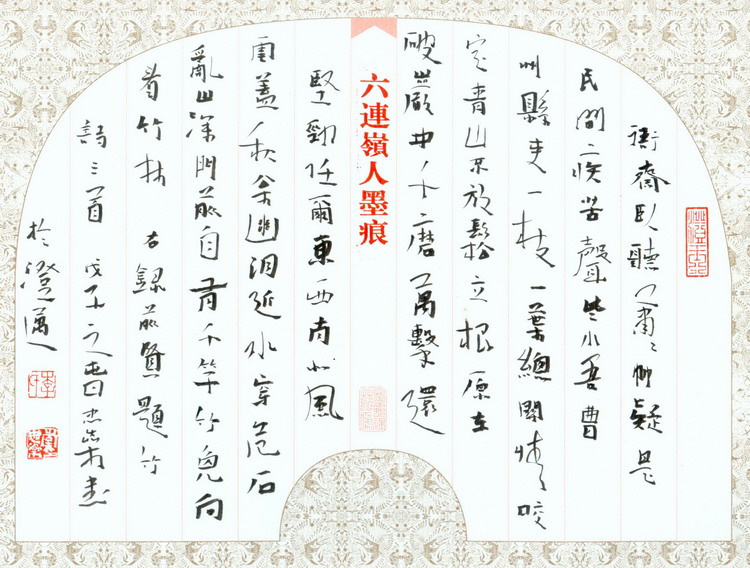 衙齋臥聽蕭〻竹疑是
民間疾苦聲些小吾曹
州縣吏一枝一葉總關情咬
定青山不放鬆立根原在
破巖中千磨萬擊還
六連嶺人墨痕
堅勁任爾東西南北風
蓋秋 幽 水穿危石
亂山深門前自有千竿竹免向
看竹林 右錄前賢題竹
詩三首 戊子之春
於澄邁